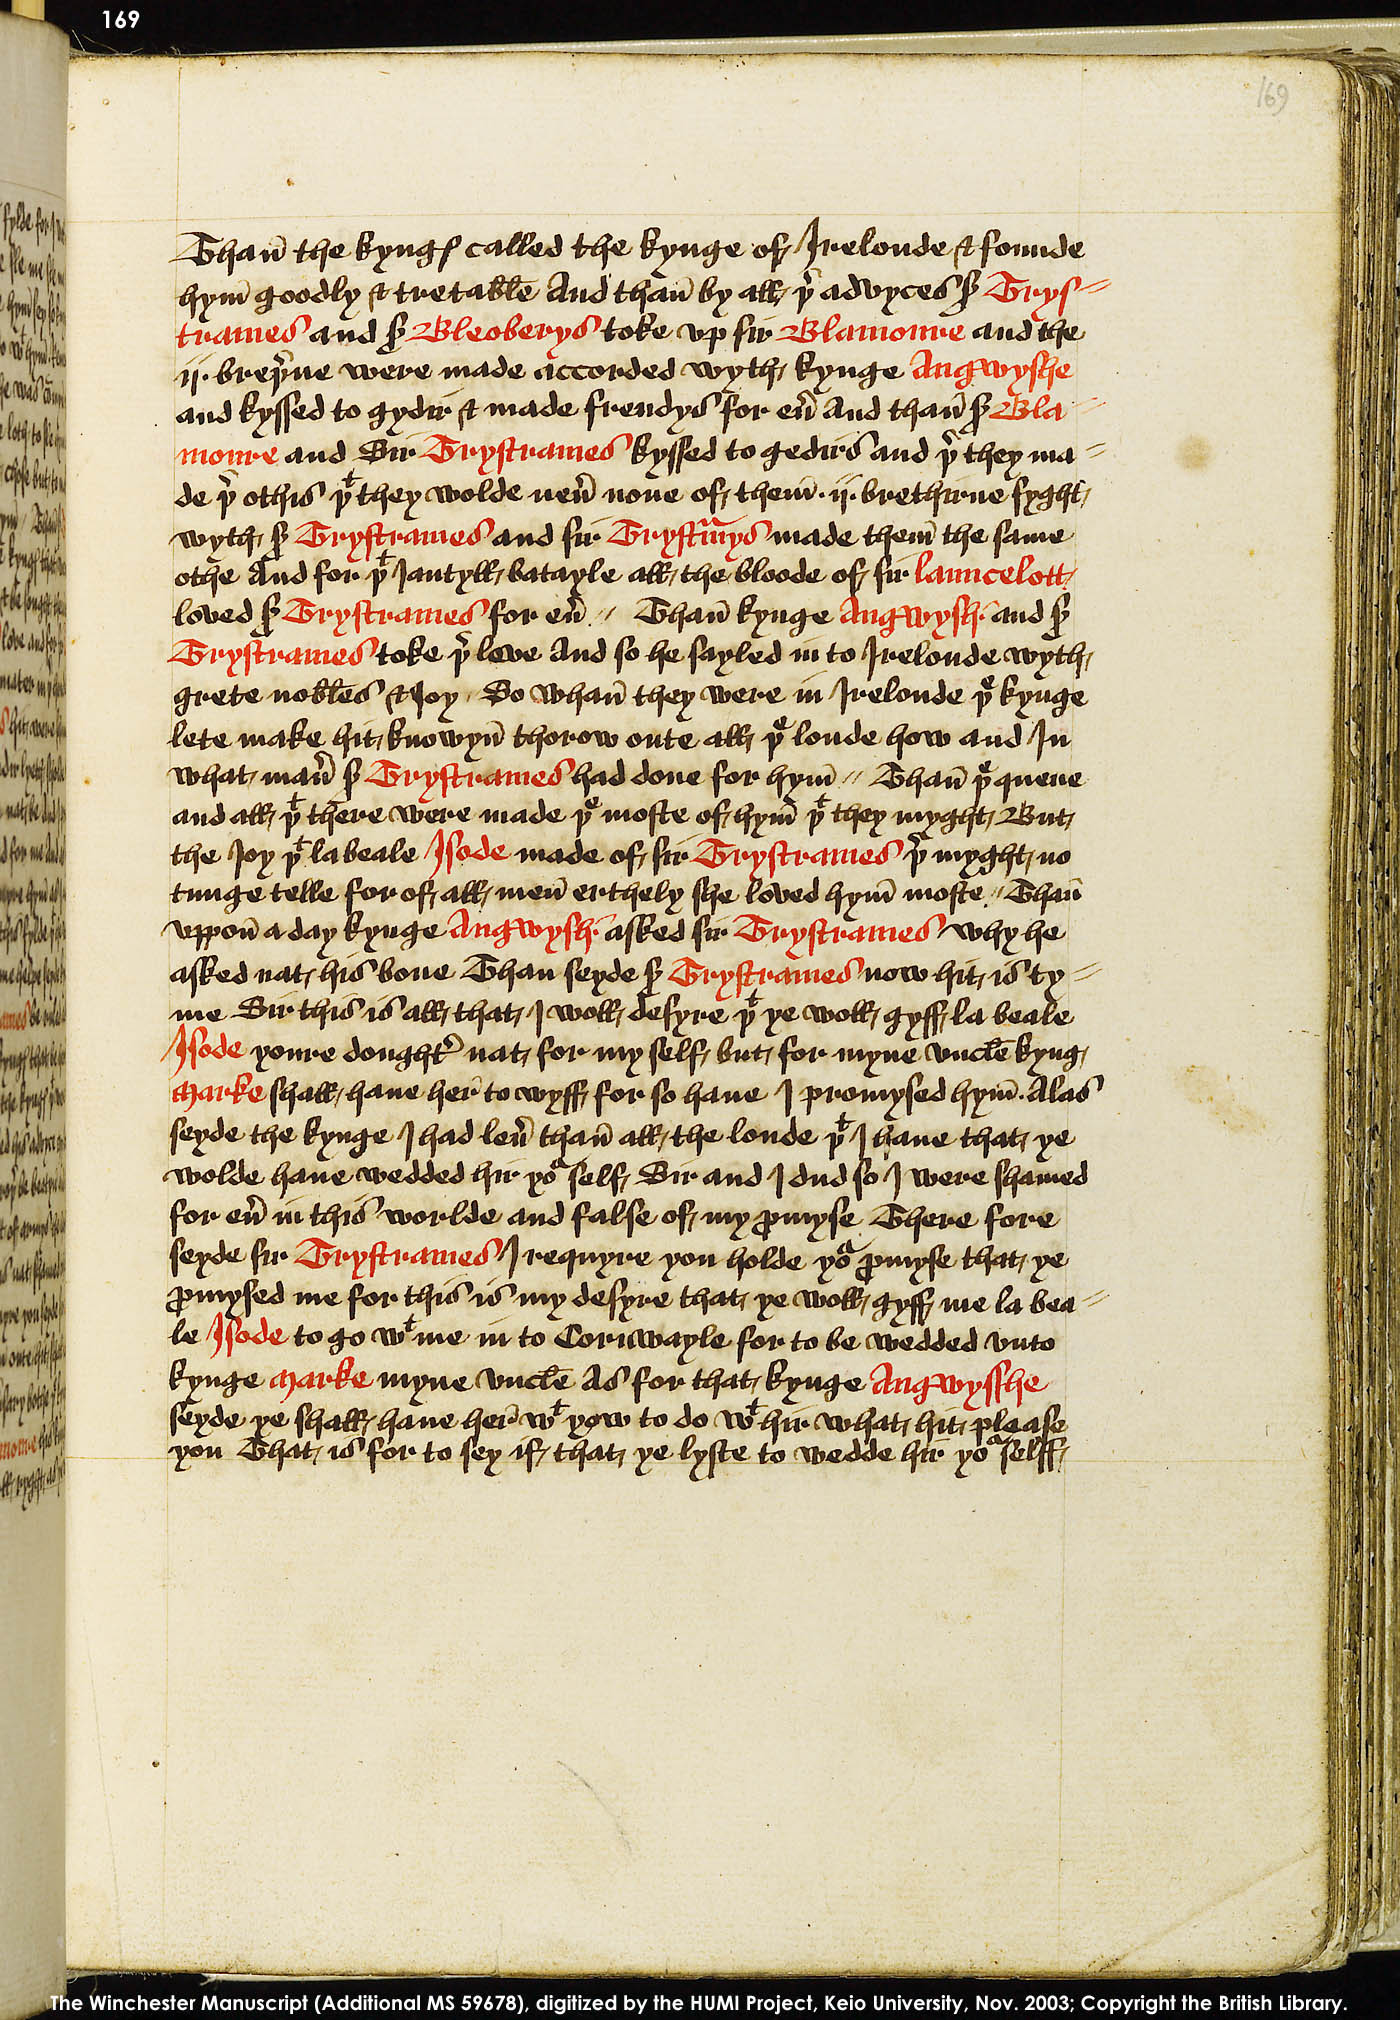 169
169
Thañ the kyngꝭ called the kynge of Irelonde & founde
hym̄ goodly & tretable And thañ by all þr̉ advyces sr̉ Trys=
trames and sr̉ Bleoberys toke vp sir Blamoure and the
ij. breþr̉ne were made accorded wyth kynge Angwyshe
and kyssed to gydir & made frendys for eṽ And thañ sr̉ Bla=
moure and Sir Trystrames kyssed to gedirs and þr̉ they ma=
de þr̉ othis þᵗ they wolde neṽ none of them̄. ij. brethirne fyght
wyth sr̉ Trystrames and sir Trystᵃmys made them̄ the same
othe And for þᵗ Jantyll batayle all the bloode of sir launcelott
loved sr̉ Trystrames for eṽ // Thañ kynge Angwysh and sr̉
Trystrames toke þr̉ leve And so he sayled in to Irelonde wyth
grete nobles & Joy So whañ they were in Irelonde þᵉ kynge
lete make hit knowyñ thorow oute all þᵉ londe how and In
what mañ sr̉ Trystrames had done for hym̄ // Thañ þᵉ quene
and all þᵗ there were made þᵉ moste of hym̄ þᵗ they myght But
the Joy þᵗ la beale Isode made of sir Trystrames þr̉ myght no
tunge telle for of all meñ erthely she loved hym̄ moste // Thañ
vppoñ a day kynge Angwysh asked sir Trystrames why he
asked nat his bone Than seyde sr̉ Trystrames now hit is ty=
me Sir this is all that I woll desyre þᵗ ye woll gyff la beale
Isode youre doughtr̉ nat for my self but for myne vncle kyng
Marke shall haue her̄ to wyff for so haue I promysed hym̄. Alas
seyde the kynge I had leṽ thañ all the londe þᵗ I haue that ye
wolde haue wedded hir yoᵃ self Sir and I dud so I were shamed
for eṽ in this worlde and false of my ꝓmyse There fore
seyde sir Trystrames I requyre you holde yoᵃ ꝓmyse that ye
ꝓmysed me for this is my desyre that ye woll gyff me la bea=
le Isode to go wᵗ me in to Cornwayle for to be wedded vnto
kynge Marke myne vncle As for that kynge Angwysshe
seyde ye shall haue her̄ wᵗ yow to do wᵗ hir what hit please
you That is for to sey if that ye lyste to wedde hir yoᵃ selff
The Winchester Manuscript (Additional MS 59678), digitized by the HUMI Project, Keio University, Nov. 2003; Copyright the British Library.